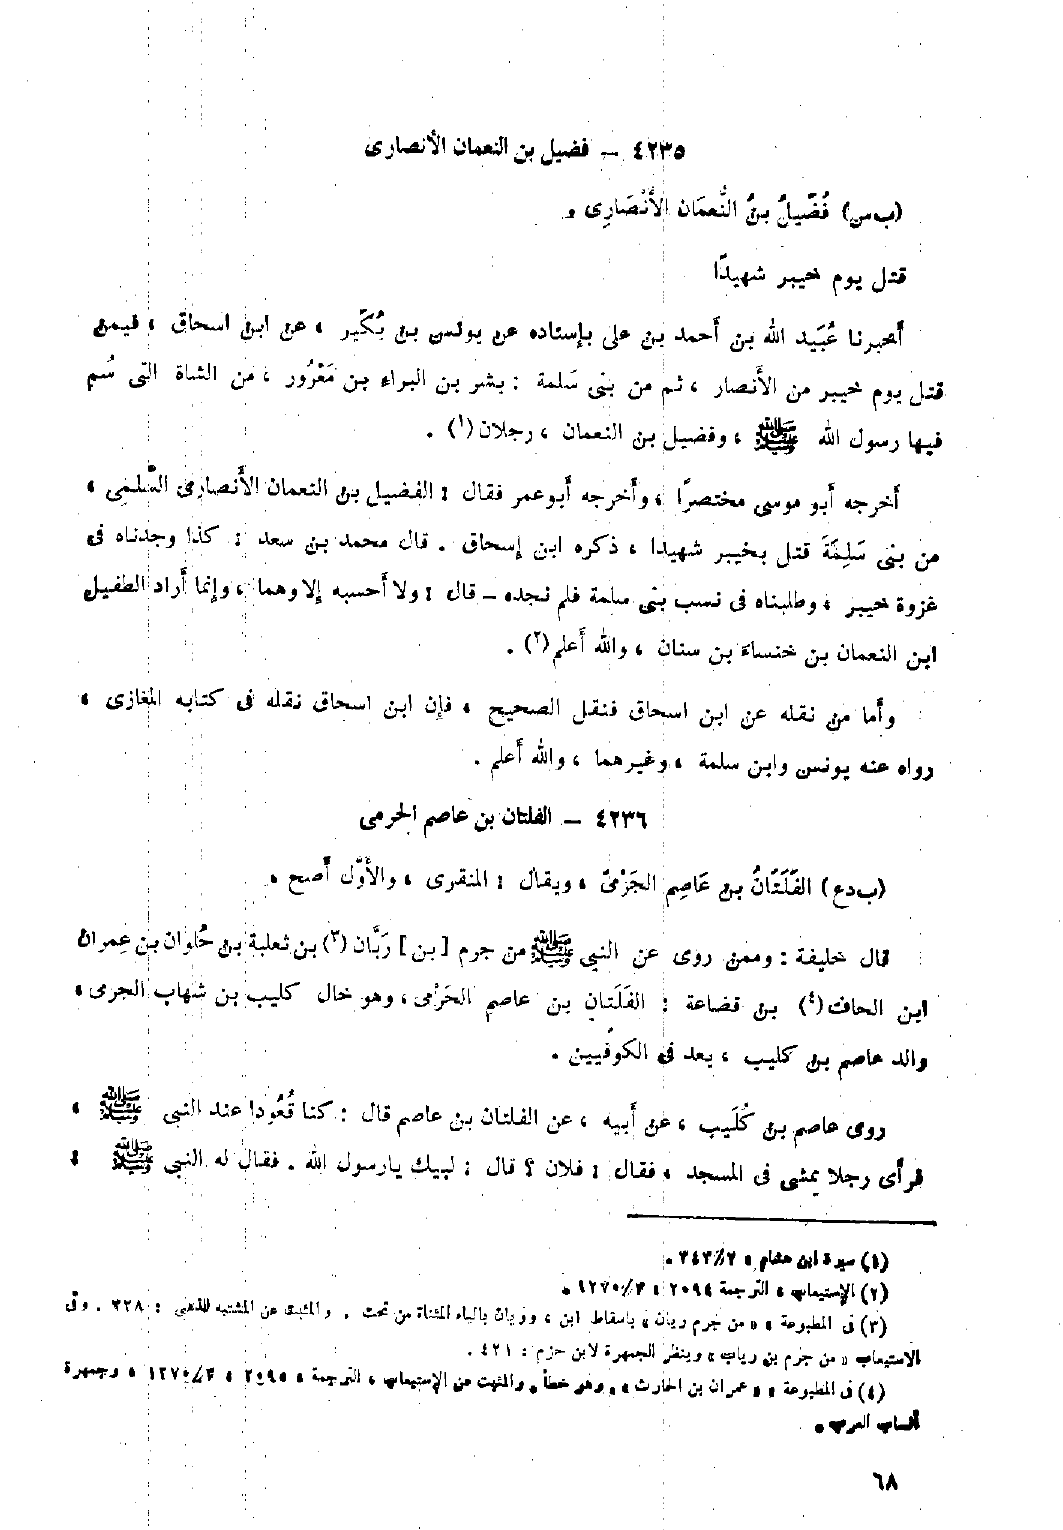 ٤٢٣٥ – فضيل بن النعمان الأنصارى
(ب س) فُضَيلُ بنُ النُّعمَان الأَنْصَارِى .
قتل يوم خيبر شهيدًا
أخبرنا عُبَيد الله بن أحمد بن على بإسناده عن يونس بن بُكَير ، عن ابن اسحاق ، فيمن
قتل يوم خيبر من الأَنصار ، ثم من بنى سَلمة : بشر بن البراء بن مَعْرُور ، من الشاة التى سُم
فيها رسول الله ﷺ ، وفضيل بن النعمان ، رجلان(١) .
أَخرجه أَبو موسى مختصرًا ، وأَخرجه أَبو عمر فقال : الفضيل بن النعمان الأَنصارى السَّلمى ،
من بنى سَلِمَةَ قتل بخيبر شهيدا ، ذكره ابن إسحاق . قال محمد بن سعد : كذا وجدناه فى
غزوة خيبر ، وطلبناه فى نسب بنى سلمة فلم نجده – قال : ولا أَحسبه إلا وهما ، وإنما أَراد الطفيل
ابن النعمان بن خنساءَ بن سنان ، والله أَعلم(٢) .
وأَما من نقله عن ابن اسحاق فنقل الصحيح ، فإن ابن اسحاق نقله فى كتابه المغازى ،
رواه عنه يونس وابن سلمة ، وغيرهما ، والله أَعلم .
٤٢٣٦ – الفلتان بن عاصم الجرمى
(ب د ع) الفَلَتَانُ بن عَاصِم الجَرْمىّ ، ويقال : المنقرى ، والأَوَّل أَصح .
قال خليفة : وممن روى عن النبي ﷺ من جرم [بن] رَبَّان (٣) بن ثعلبة بن حُلوان بن عِمران
ابن الحاف(٤) بن قضاعة : الفَلَتَان بن عاصم الجَرْمى ، وهو خال كليب بن شهاب الجرمى ،
والد عاصم بن كليب ، يعد فى الكوفيين .
روى عاصم بن كُلَيب ، عن أَبيه ، عن الفلتان بن عاصم قال : كنا قُعُودا عند النبى ﷺ ،
فرأى رجلا يمشى فى المسجد ، فقال : فلان ؟ قال : لبيك يارسول الله . فقال له النبى ﷺ :
(١) سيرة ابن هشام : ٢/٣٤٣ .
(٢) الإستيعاب ، الترجمة ٢٠٩٤ : ٣/١٢٧٠ .
(٣) فى المطبوعة : « من جرم ريان » باسقاط ابن ، وريان بالياء المثناة من تحت . والمثبت عن المشتبه للذهبى : ٣٢٨ . وفى
الاستيعاب « من جرم بن رياب » وينظر الجمهرة لابن حزم : ٤٢١ .
(٤) فى المطبوعة : « عمران بن الحارث » . وهو خطأ . والمثبت عن الإستيعاب ، الترجمة ، ٢٠٩٥ : ٣/١٢٧٠ ، وجمهرة
أنساب العرب .
٦٨